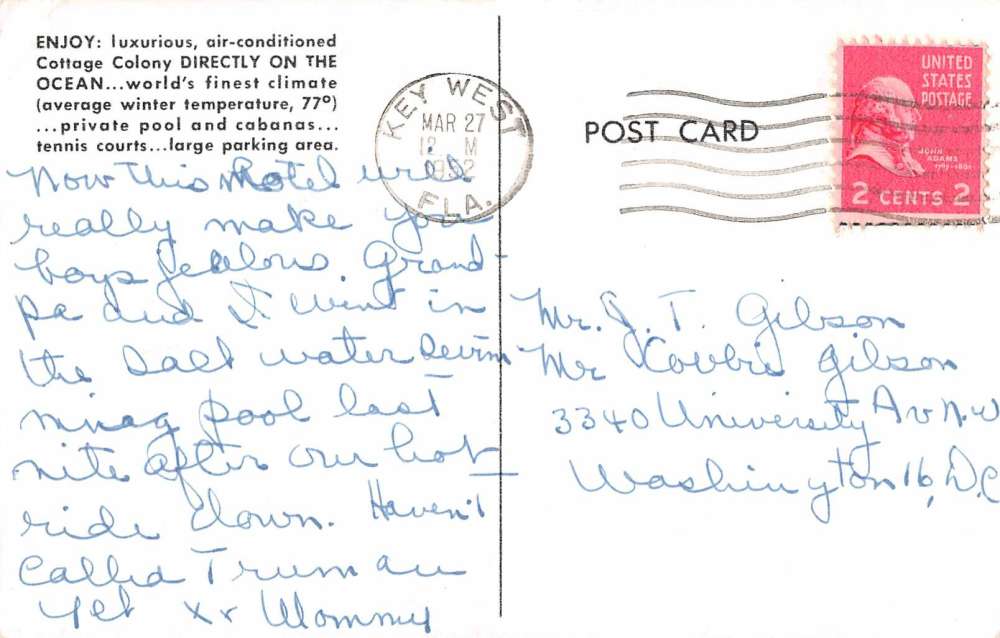 ENJOY: luxurious, air-conditioned
Cottage Colony DIRECTLY ON THE
OCEAN...world's finest climate
(average winter temperature, 77°)
...private pool and cabanas...
tennis courts...large parking area.
KEY WEST
MAR 27
12 M
1952
FLA.
POST CARD
UNITED
STATES
POSTAGE
JOHN
ADAMS
1797-1801
2 CENTS 2
Now this Motel will
really make you
boys jealous. Grand-
pa and I went in
the salt water swim-
ming pool last
nite after our hot
ride down. Haven't
Called Truman
yet xx Mommy
Mr. J. T. Gibson
Mr Gibson
3340 University Av N.W
Washington 16, D.C